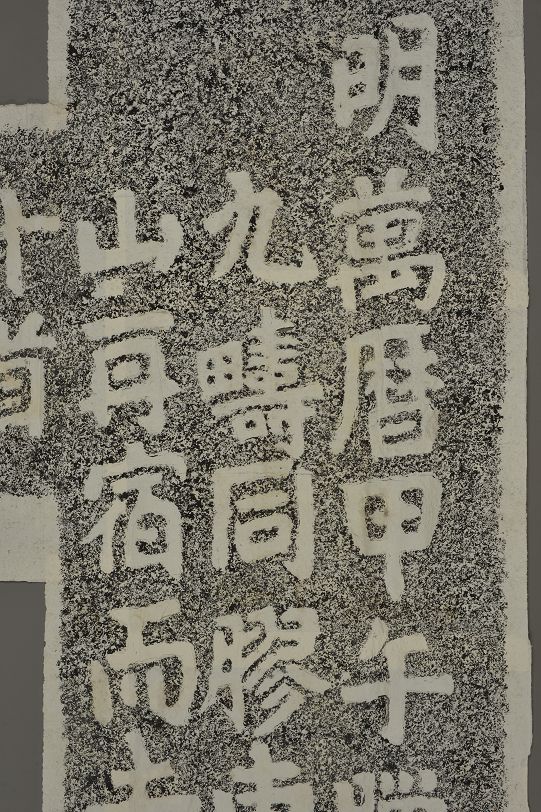 明萬曆甲午
九疇同膠
山再宿而